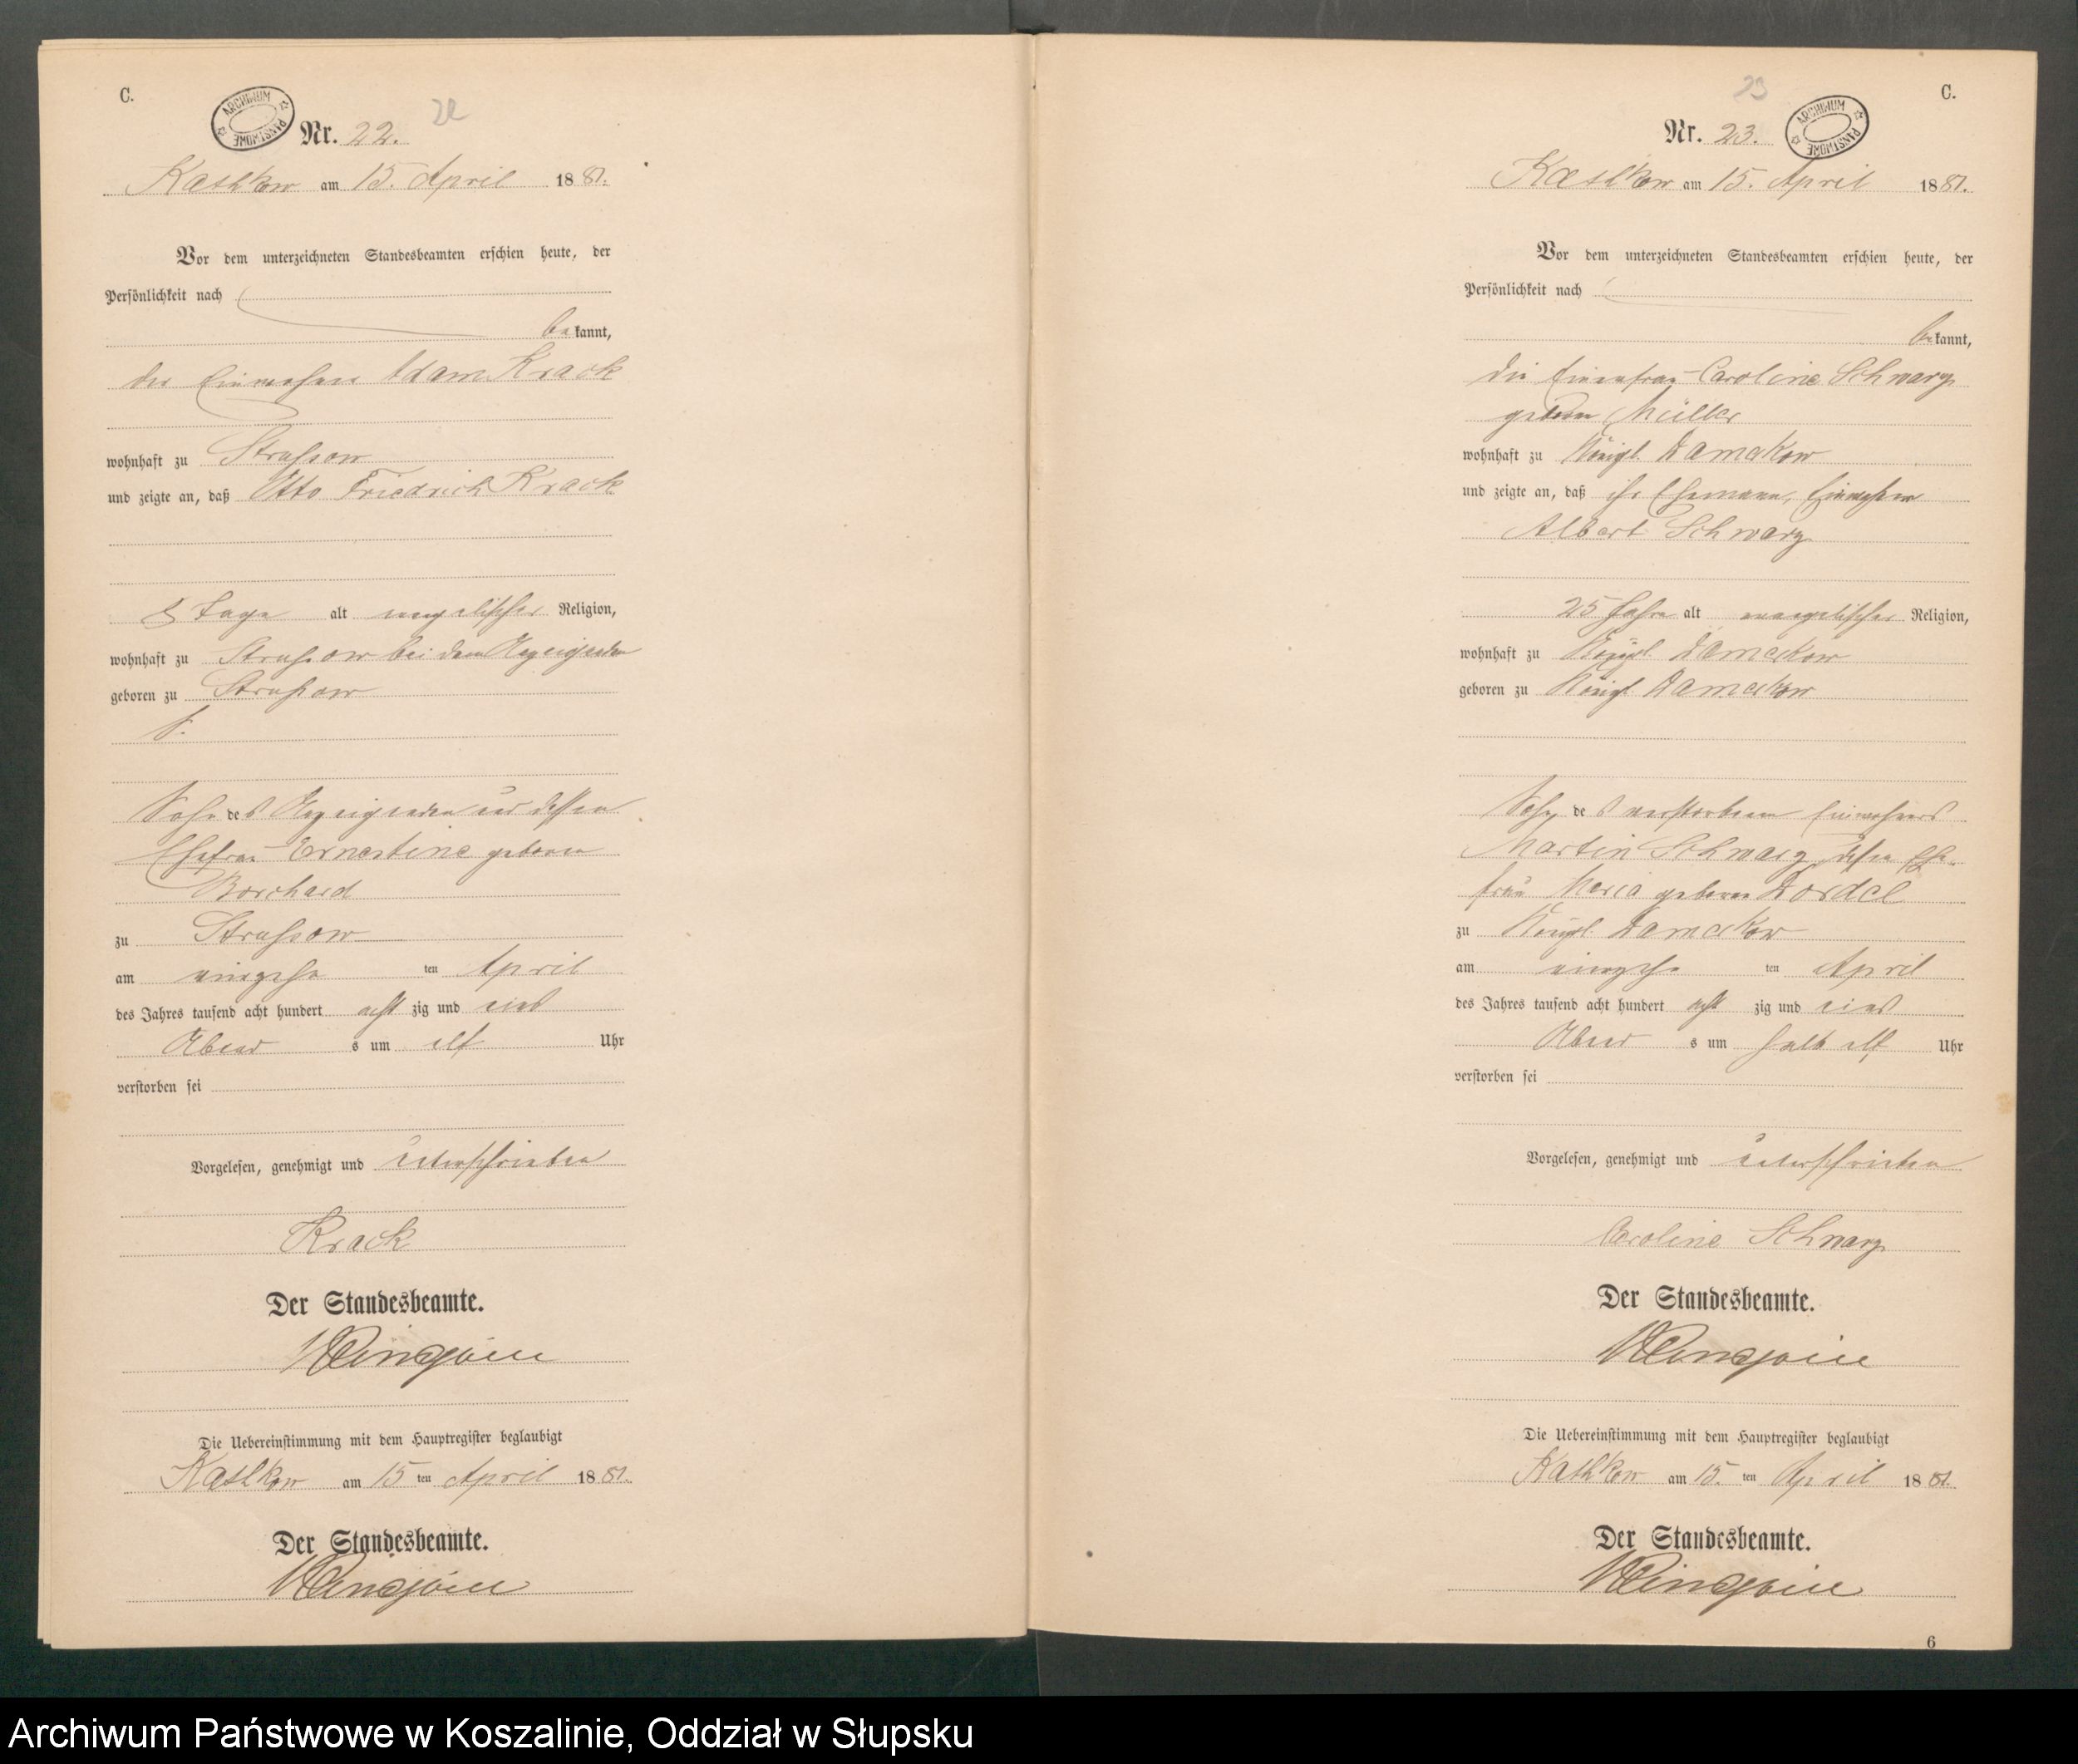 C.
ARCHIWUM PAŃSTWOWE
Nr. 22.
Kathkow am 15. April 1881.
Vor dem unterzeichneten Standesbeamten erschien heute, der
Persönlichkeit nach
bekannt,
der Einwohner Adam Krack
wohnhaft zu Strussow
und zeigte an, daß Otto Friedrich Krack
Tage alt evangelischer Religion,
wohnhaft zu Strussow bei dem Anzeigenden
geboren zu Strussow
Sohn des Anzeigenden und dessen
Ehefrau Ernestine geborene
Borchard
zu Strussow
am vierzehn ten April
des Jahres tausend acht hundert achtzig und eins
Abends um elf Uhr
verstorben sei
Vorgelesen, genehmigt und unterschrieben
Krack
Der Standesbeamte.
Die Uebereinstimmung mit dem Hauptregister beglaubigt
Kathkow am 15 ten April 1881.
Der Standesbeamte.
23
C.
ARCHIWUM PAŃSTWOWE
Nr. 23.
Kathkow am 15. April 1881.
Vor dem unterzeichneten Standesbeamten erschien heute, der
Persönlichkeit nach
bekannt,
die Caroline Schwarz
geborene Müller
wohnhaft zu Königl. Damerkow
und zeigte an, daß ihr Ehemann, Einwohner
Albert Schwarz
25 Jahre alt evangelischer Religion,
wohnhaft zu Königl. Damerkow
geboren zu Königl. Damerkow
Sohn des verstorbenen Einwohners
Martin Schwarz, dessen Ehe-
frau Maria geborene Dordel
zu Königl. Damerkow
am vierzehn ten April
des Jahres tausend acht hundert achtzig und eins
Abends um halb elf Uhr
verstorben sei
Vorgelesen, genehmigt und unterschrieben
Caroline Schwarz
Der Standesbeamte.
Die Uebereinstimmung mit dem Hauptregister beglaubigt
Kathkow am 15. ten April 1881.
Der Standesbeamte.
6
Archiwum Państwowe w Koszalinie, Oddział w Słupsku